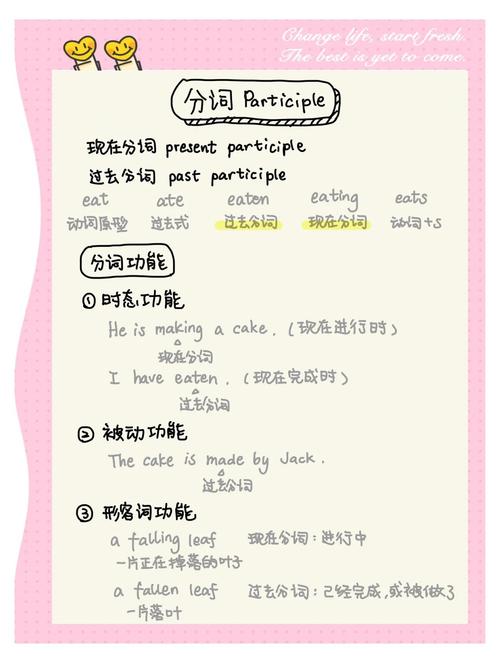 Change life, start fresh.
The best is yet to come.
分词 Participle
现在分词 present participle
过去分词 past participle
eat ate eaten eating eats
动词原型 过去式 过去分词 现在分词 动词+s
分词功能
① 时态功能
He is making a cake. (现在进行时)
现在分词
I have eaten. (现在完成时)
过去分词
② 被动功能
The cake is made by Jack.
过去分词
③ 形容词功能
a falling leaf 现在分词：进行中
一片正在掉落的叶子
a fallen leaf 过去分词：已经完成，或被做了
一片落叶